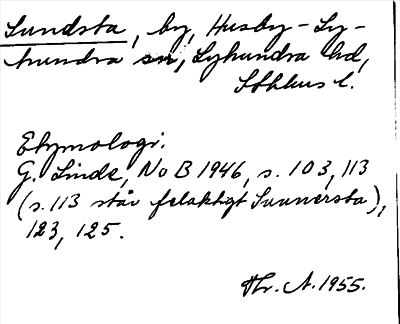 Sundsta, by, Husby-Ly-
hundra sn, Lyhundra hd,
Sthlms l.
Etymologi.
G. Linde, NoB 1946, s. 103, 113
(s. 113 står felaktigt Sunnersta),
123, 125.
Hr. A. 1955.